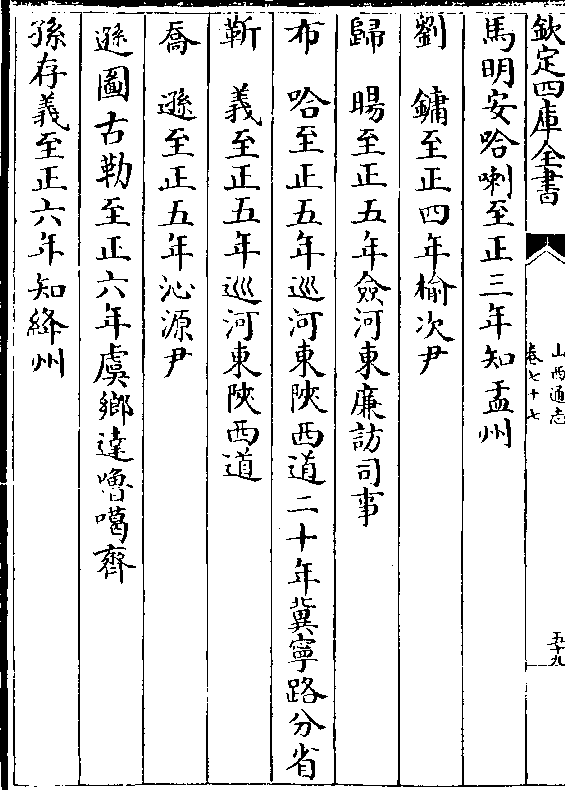 欽定四庫全書
山西通志
卷七十七
五十九
馬明安哈喇至正三年知盂州
劉鏞至正四年榆次尹
歸暘至正五年僉河東廉訪司事
布哈至正五年巡河東陜西道二十年冀寧路分省
靳義至正五年巡河東陜西道
喬遜至正五年沁源尹
遜圖古勒至正六年虞鄉達嚕噶齊
孫存義至正六年知絳州